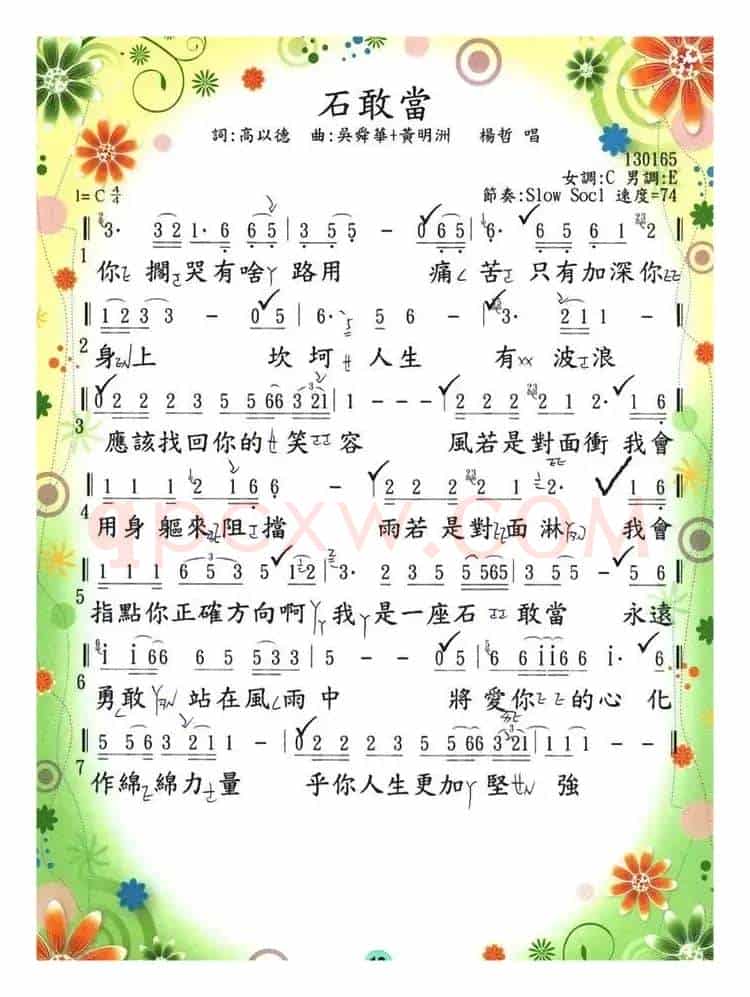 石敢當
詞:高以德 曲:吳舜華+黃明洲 楊哲 唱
130165
女調:C 男調:E
1= C 4/4 節奏:Slow Socl 速度=74
3· 3 2 1· 6 6 5 | 3 5 5 - 0 6 5 | 6· 6 5 6 1 2
1 你 擱哭有啥 路用 痛 苦 只有加深你
1 2 3 3 3 - 0 5 | 6· 5 6 - 5 | 3· 2 1 -
2 身 上 坎坷 人生 有 波浪
0 2 2 2 3 5 5 66 3 21 | 1 - - - | 2 2 2 2 1 2· 1 6
3 應該找回你的 笑 容 風若是對面衝 我會
1 1 1 2 1 6 6 - | 2 2 2 2 1 2· 1 6
4 用身 軀來 阻 擋 雨若 是對 面 淋 我會
qpcxw.com
1 1 1 6 6 5 3 5 1 2 | 3· 2 3 5 5 565 | 3 5 5 - 5
5 指點你正確方向啊 我 是一座石 敢當 永遠
i i 66 6 5 5 3 3 | 5 - - 0 5 | 6 i i 6 6 i· 6
6 勇敢 站在風 雨中 將 愛你 的心 化
5 5 5 6 3 2 1 1 - | 0 2 2 2 3 5 5 66 3 21 | 1 1 1 - -
7 作綿 綿力 量 乎你人生更加 堅 強